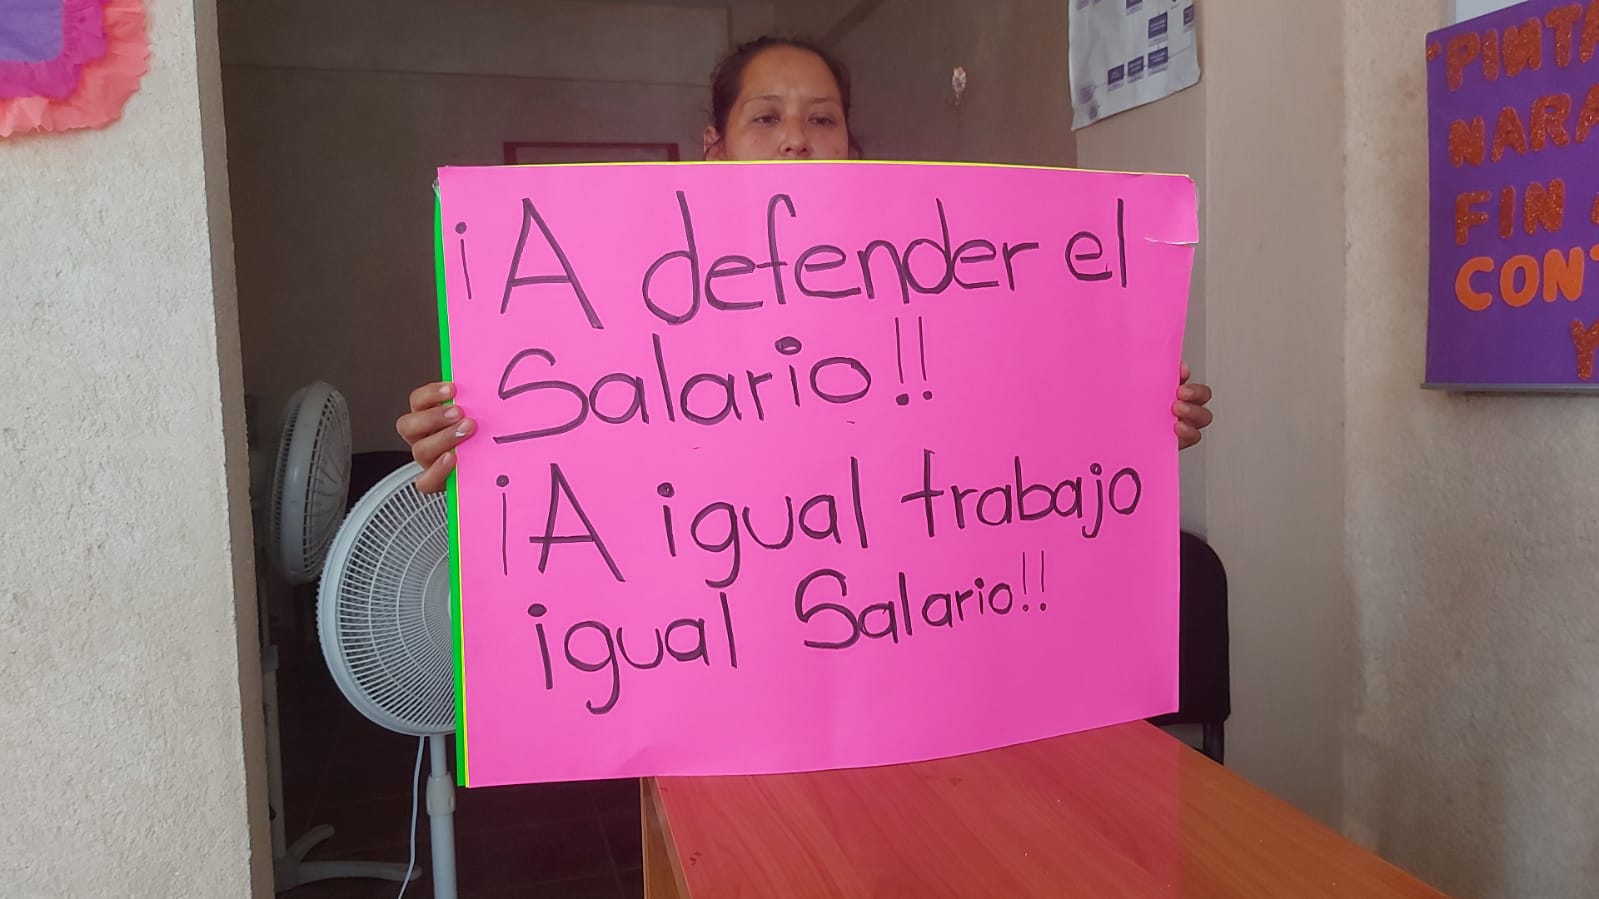 ¡A defender el
Salario!!
¡A igual trabajo
igual Salario!!
"PINTA
NARA
FIN
CON
Y